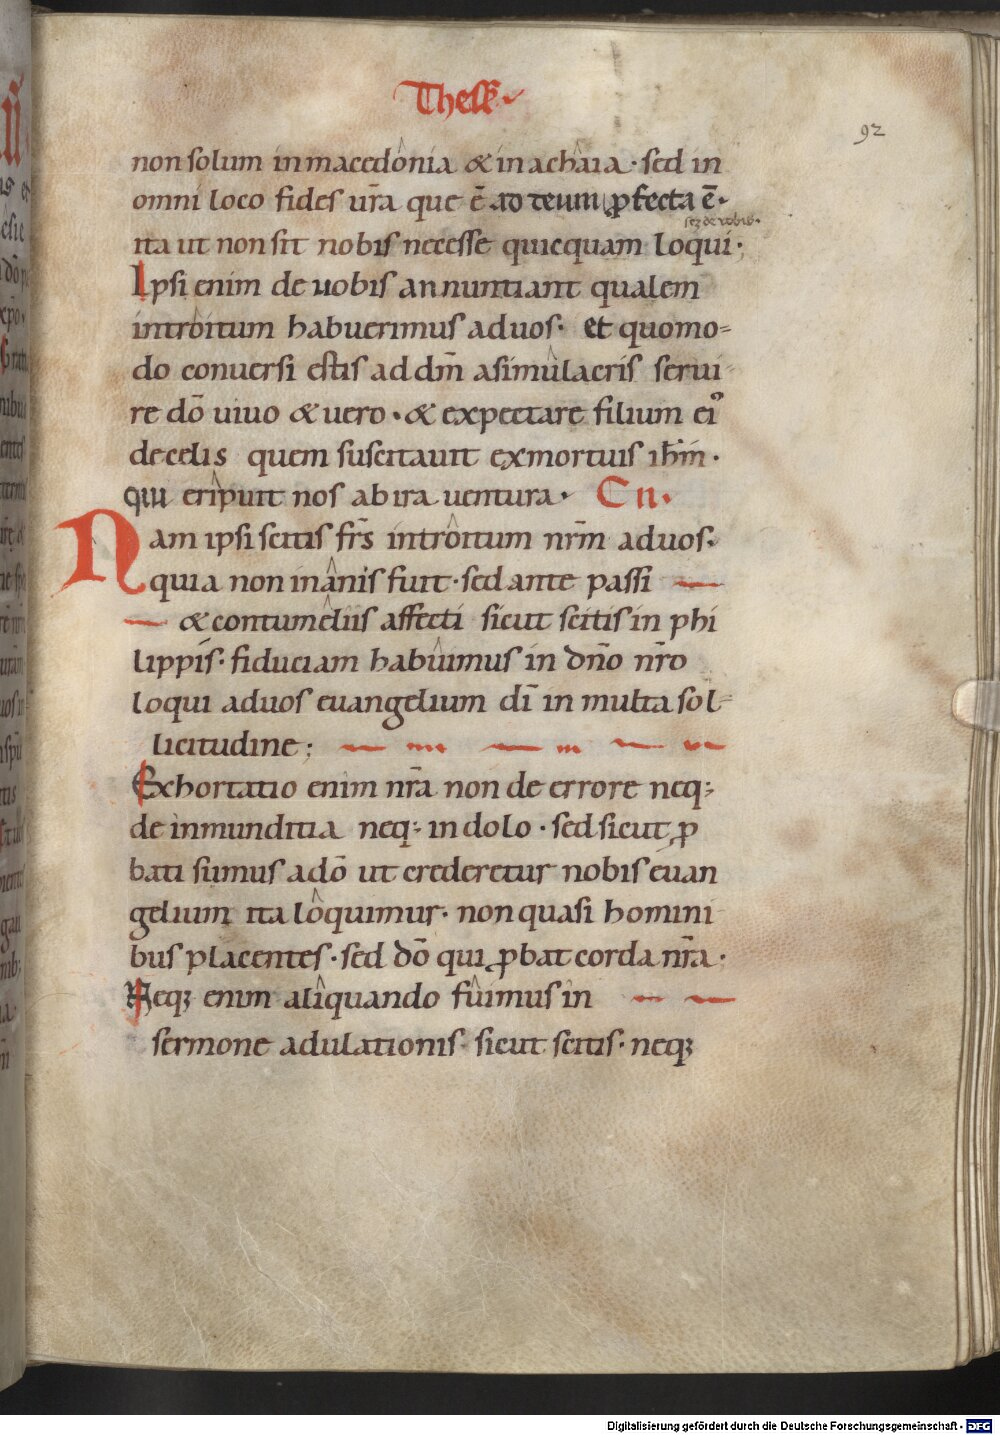 Thess
92
non solum in macedonia & in achaia · sed in
omni loco fides ur̄a que ē ad deum ꝓfecta ē ·
scȝ de vobis ·
ita ut non sit nobis necesse quicquam loqui ;
Ipsi enim de uobis annuntiant qualem
introitum habuerimus ad uos · et quomo-
do conuersi estis ad dm̄ a simulacris serui-
re dō uiuo & uero · & expectare filium ei᾿
de celis quem suscitauit ex mortuis ihm̄ ·
qui eripuit nos ab ira uentura · C II ·
Nam ipsi scitis fr̄s introitum nr̄m ad uos ·
quia non inanis fuit · sed ante passi
& contumeliis affecti sicut scitis in phi
lippis · fiduciam habuimus in dn̄o nr̄o
loqui ad uos euangelium dī in multa sol-
licitudine ;
Exhortatio enim nr̄a non de errore neq;
de inmunditia neq; in dolo · sed sicut ꝓ
bati sumus a dō ut crederetur nobis euan
gelium ita loquimur · non quasi homini
bus placentes · sed dō qui ꝓbat corda nr̄a ·
Neqȝ enim aliquando fuimus in
sermone adulationis · sicut scitis · neqȝ
Digitalisierung gefördert durch die Deutsche Forschungsgemeinschaft - DFG